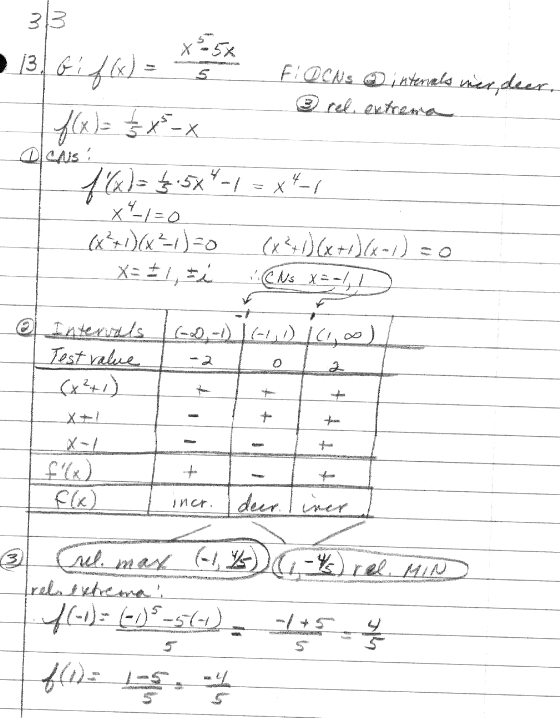 33
13. G: f(x) = (x⁵-5x)/5    F: ① CNs ② intervals incr, decr.
③ rel. extrema
f(x) = 1/5 x⁵ - x
① CNs:
f'(x) = 1/5 · 5x⁴ - 1 = x⁴ - 1
x⁴ - 1 = 0
(x²+1)(x²-1) = 0    (x²+1)(x+1)(x-1) = 0
x = ±1, ±i    ∴ CNs x = -1, 1
-1    1
② Intervals    (-∞, -1)    (-1, 1)    (1, ∞)
Test value    -2    0    2
(x²+1)    +    +    +
x+1    -    +    +
x-1    -    -    +
f'(x)    +    -    +
f(x)    incr.    decr    incr
③ rel. max (-1, 4/5)    (1, -4/5) rel. MIN
rel. extrema:
f(-1) = ((-1)⁵ - 5(-1))/5 = (-1+5)/5 = 4/5
f(1) = (1-5)/5 = -4/5